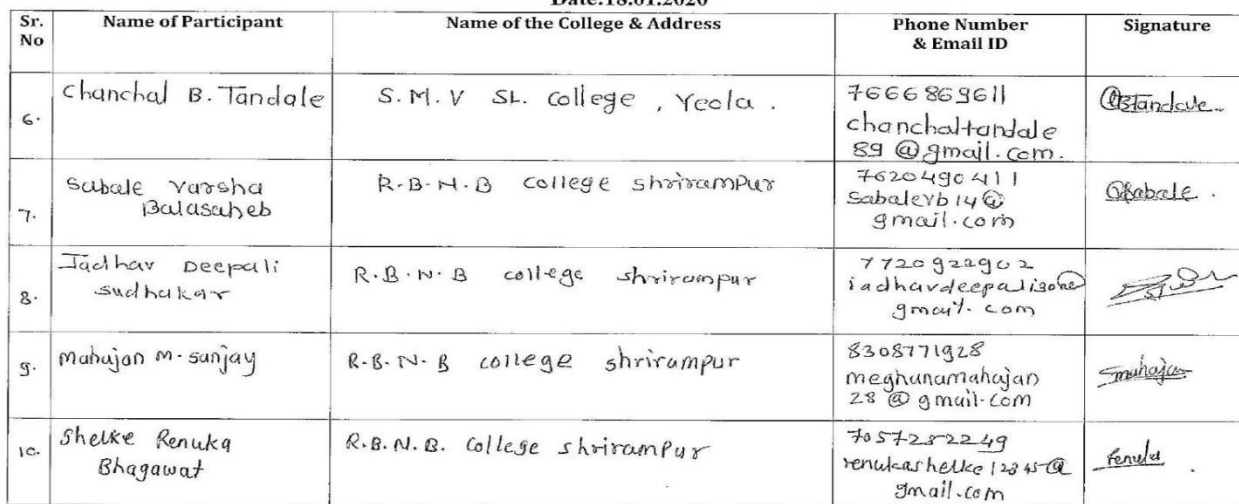 Date:18.01.2020
Sr. No
Name of Participant
Name of the College & Address
Phone Number & Email ID
Signature
6.
Chanchal B. Tandale
S.M.V SL. College, Yeola.
7666869611
chanchaltandale
89@gmail.com.
Tandale
7.
Sabale Varsha
Balasaheb
R.B.N.B college shrirampur
7620490411
Sabalevb14@
gmail.com
Sabale.
8.
Jadhav Deepali
sudhakar
R.B.N.B college shrirampur
7720922902
gmail.com
9.
Mahajan M. sanjay
R.B.N.B college shrirampur
8308771928
meghanamahajan
28@gmail.com
mahajan
10.
Shelke Renuka
Bhagawat
R.B.N.B. College shrirampur
7057282249
renukashelke12345@
gmail.com